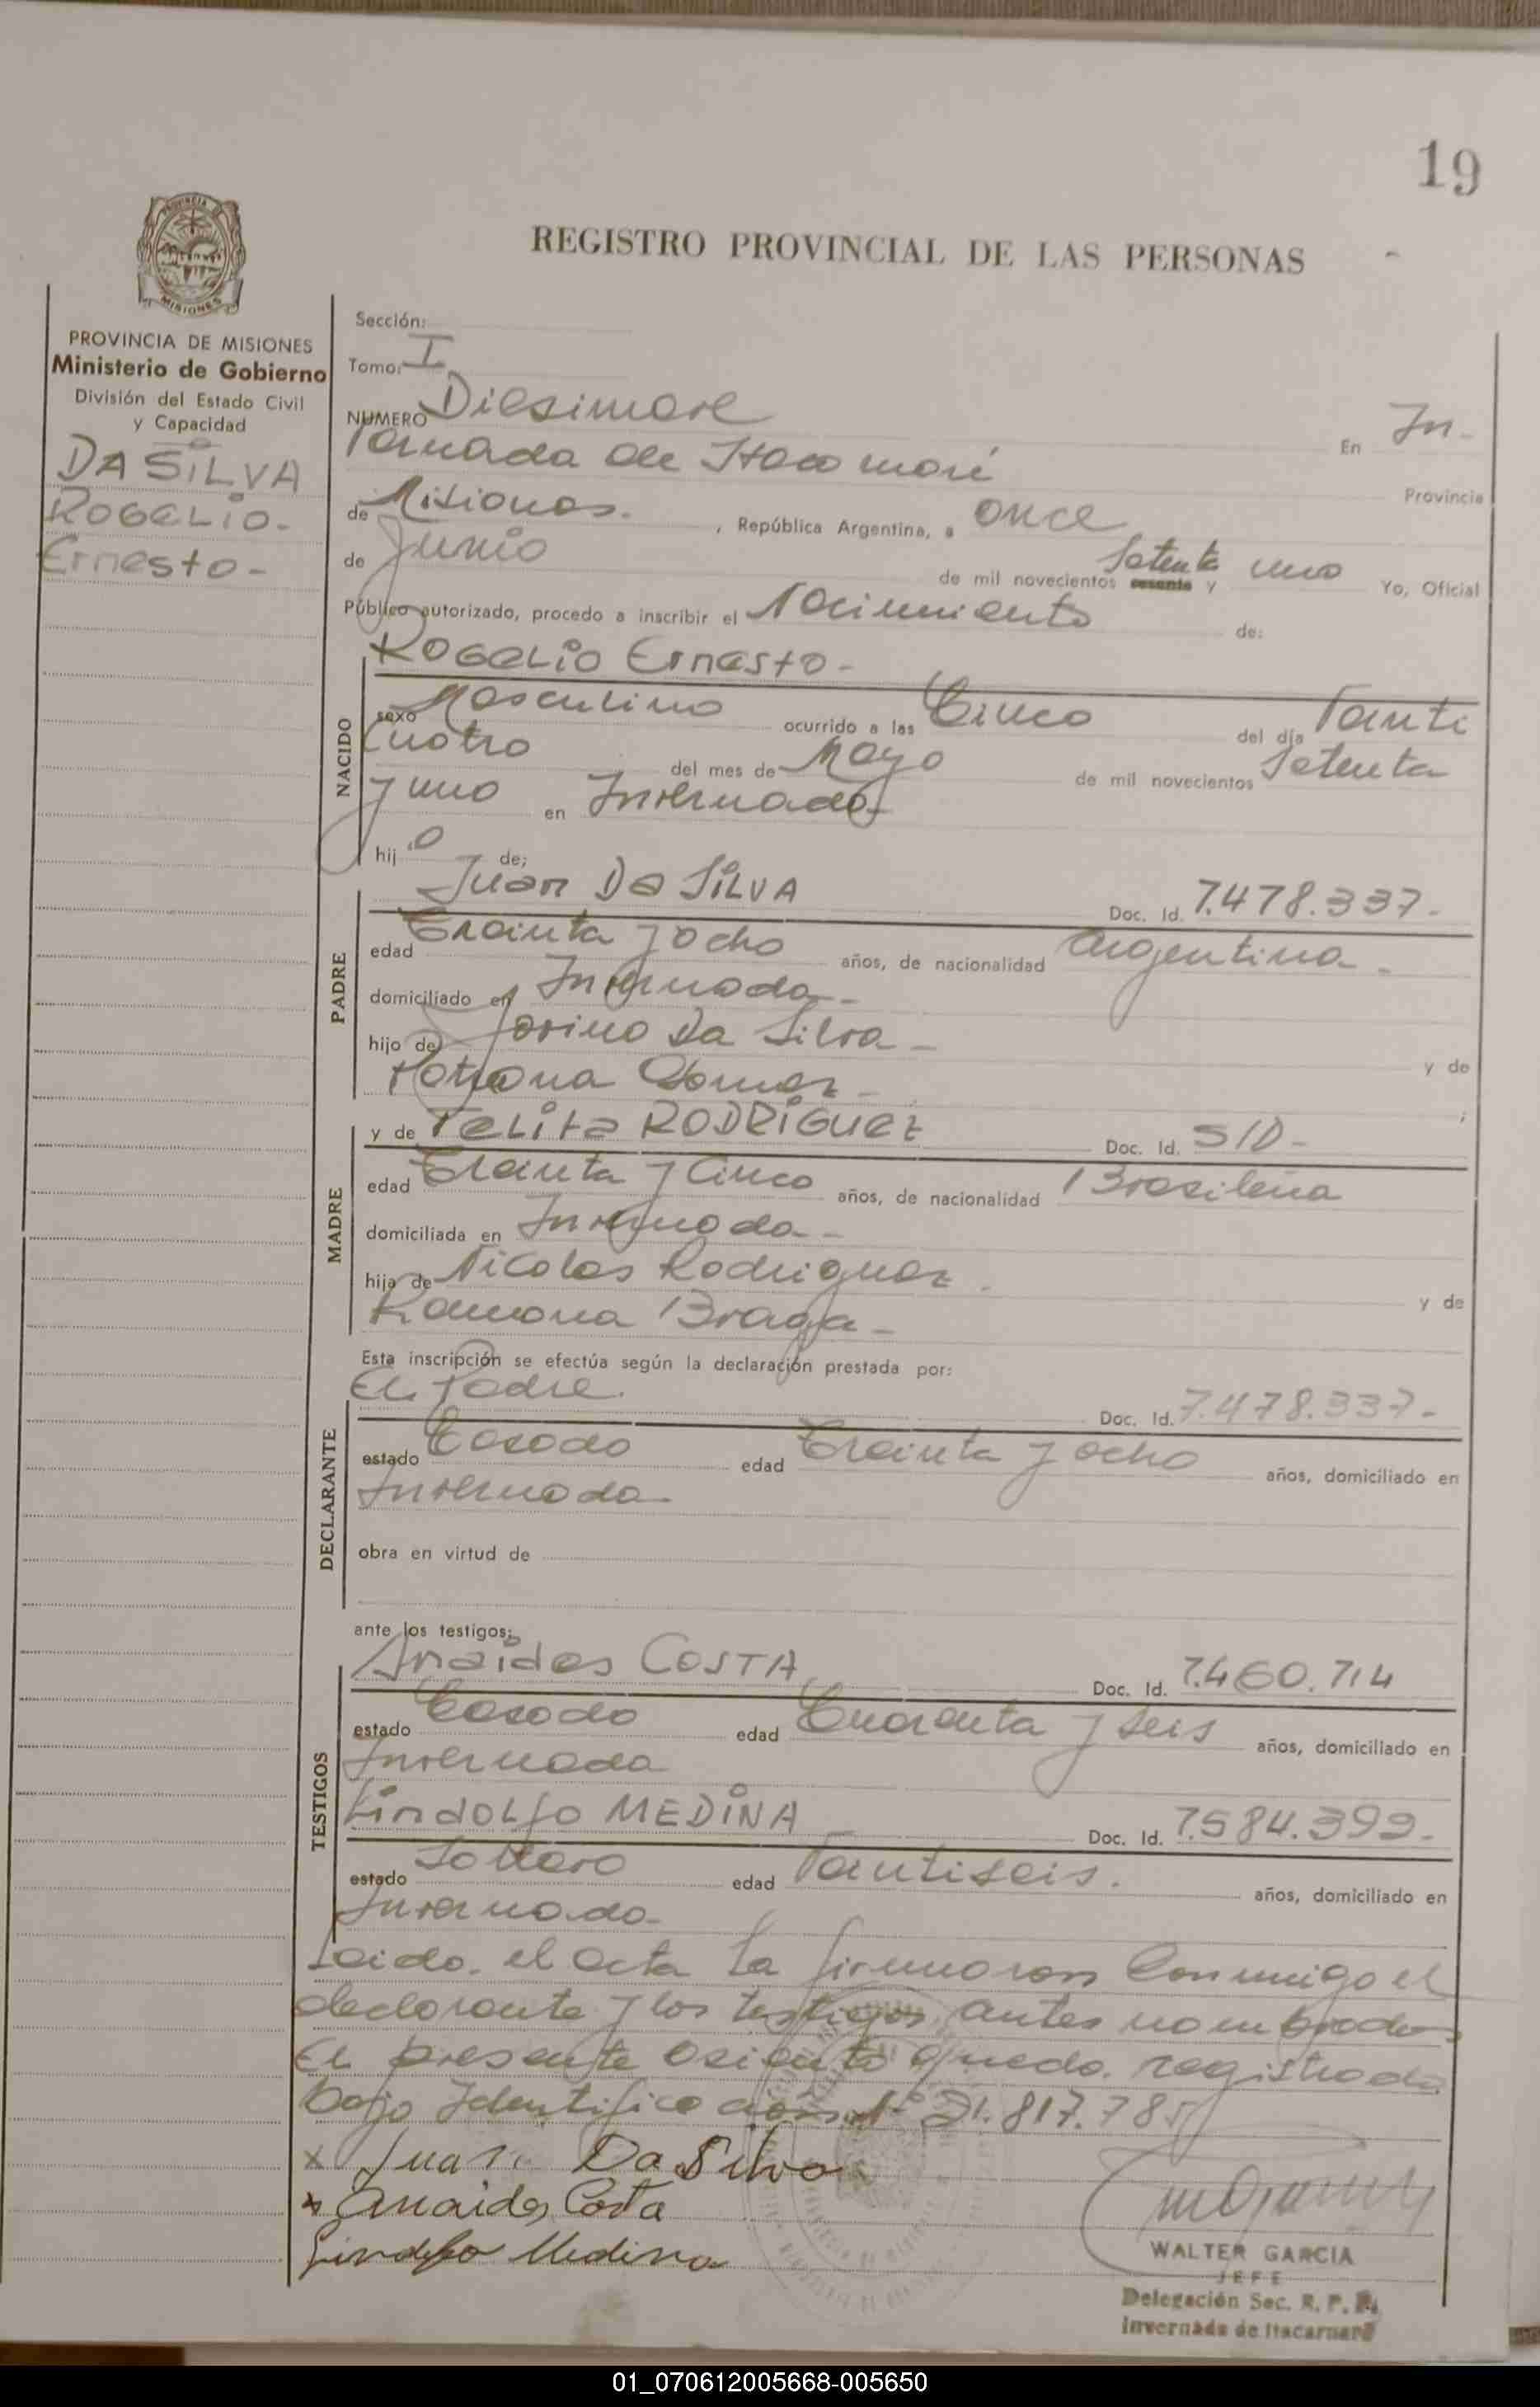 19
PROVINCIA DE
MISIONES
REGISTRO PROVINCIAL DE LAS PERSONAS
PROVINCIA DE MISIONES
Ministerio de Gobierno
División del Estado Civil
y Capacidad
DA SILVA
ROGELIO-
Ernesto-
Sección:
Tomo: I
NUMERO Diesinueve En In-
vernada de Itacaruaré Provincia
de Misiones. , República Argentina, a once
de Junio de mil novecientos sesenta y Setenta uno Yo, Oficial
Público autorizado, procedo a inscribir el Nacimiento de:
NACIDO
ROGELIO Ernesto-
sexo Masculino ocurrido a las Cinco del día Veinti
cuatro del mes de Mayo de mil novecientos Setenta
y uno en Invernada
hijo de;
PADRE
Juan DA SILVA Doc. Id. 7.478.337-
edad Treinta y ocho años, de nacionalidad Argentina-
domiciliado en Invernada-
hijo de Da Silva- y de
Gomez- ;
MADRE
y de RODRIGUEZ Doc. Id. S/D-
edad Treinta y Cinco años, de nacionalidad Brasileña
domiciliada en Invernada-
hija de Nicolas Rodriguez. y de
Ramona Braga-
Esta inscripción se efectúa según la declaración prestada por:
DECLARANTE
El Padre. Doc. Id. 7.478.337-
estado Casado edad Treinta y ocho años, domiciliado en
Invernada-
obra en virtud de
ante los testigos:
TESTIGOS
Anaides COSTA Doc. Id. 7.460.714
estado Casado edad Cuarenta y seis años, domiciliado en
Invernada
Lindolfo MEDINA Doc. Id. 7.584.399-
estado Soltero edad Veintiseis. años, domiciliado en
Invernada-
Leido. el acta la firmaron Conmigo el
declarante y los testigos antes nombrados
El presente asiento queda. registrada
bajo Identificación Nº 21.817.785
x Juan Da Silva
x Anaides Costa
Lindolfo Medina
WALTER GARCIA
JEFE
Delegación Sec. R. P. P.
Invernada de Itacaruaré
01_070612005668-005650